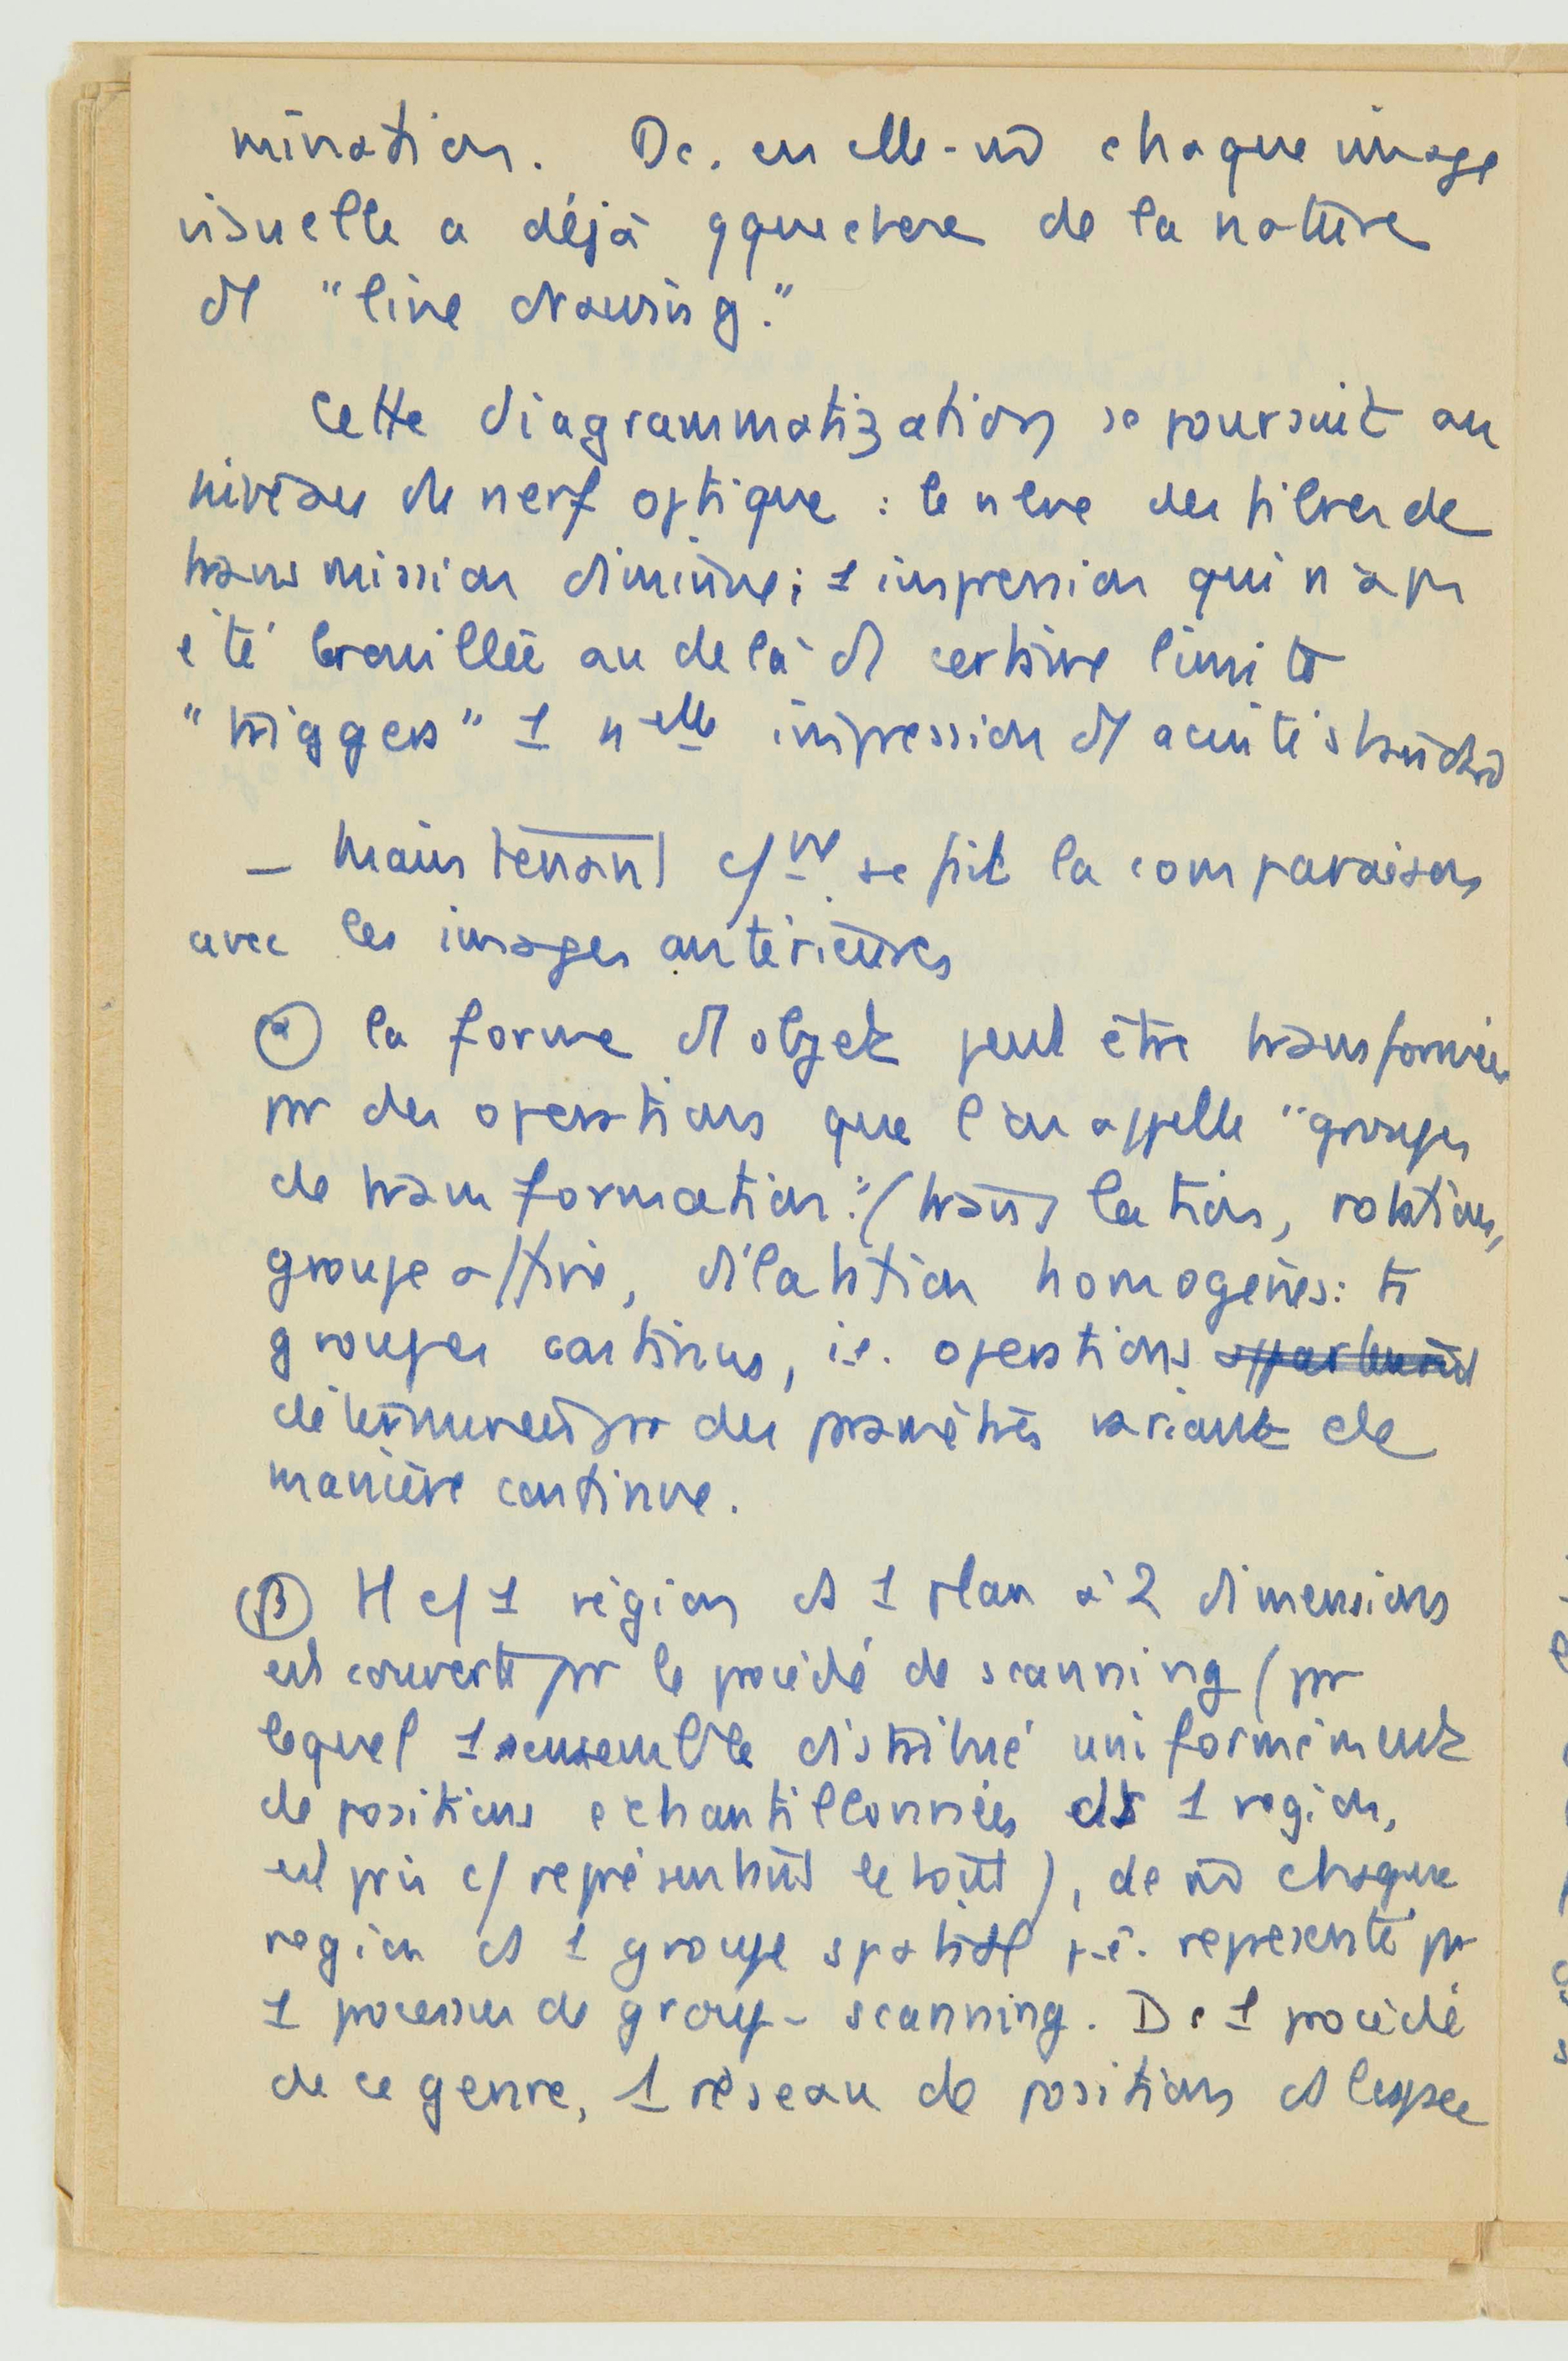 mination. Dc. en elle-m̄ chaque image
visuelle a déjà qquechose de la nature
d'1 "line drawing."
Cette diagrammatization se poursuit au
niveau du nerf optique : le nbre des fibres de
transmission diminue ; 1 impression qui n'a pas
été brouillée au delà d'1 certaine limite
"trigger" 1 nelle impression d'1 acuité standard
– Maintenant c/nt se fait la comparaison
avec les images antérieures
α la forme d'1 objet peut être transformée
par des operations que l'on appelle "groupes
de transformation" : (translation, rotation,
groupe affine, dilatation homogènes : ts
groupes continus, i.e. operations appartenant
déterminées par des paramètres variant de
manière continue.
β) H c/ 1 région ds 1 plan à 2 dimensions
est couverte par le procédé de scanning (par
lequel 1 ensemble distribué uniformément
de positions échantillonnées ds 1 region,
est pris c/ représentant le tout), de m̄ chaque
region ds 1 groupe spatial p.ê. représenté par
1 processus de group-scanning. Ds 1 procédé
de ce genre, 1 réseau de positions ds l'espace